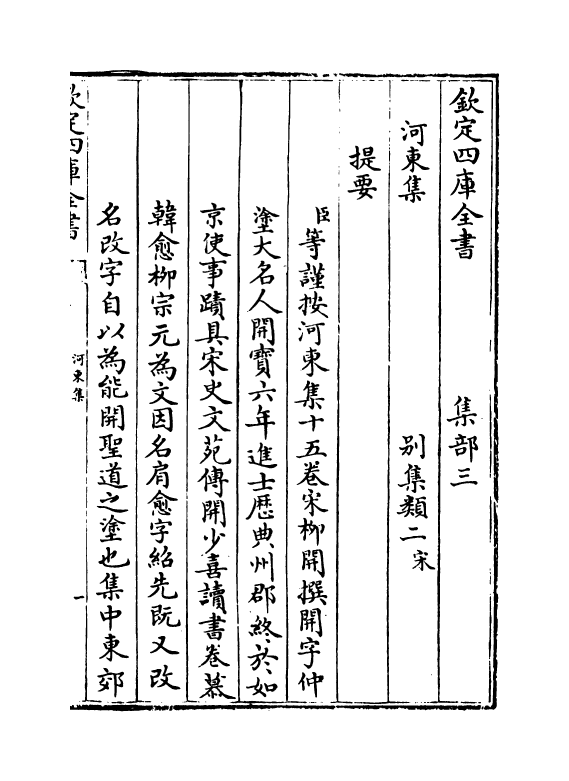 欽定四庫全書 集部三
河東集 别集類二宋
提要
臣等謹按河東集十五卷宋柳開撰開字仲
塗大名人開寶六年進士歴典州郡終於如
京使事蹟具宋史文苑傳開少喜讀書卷慕
韓愈柳宗元為文因名肩愈字紹先既又改
名改字自以為能開聖道之塗也集中東郊
欽定四庫全書 河東集 一